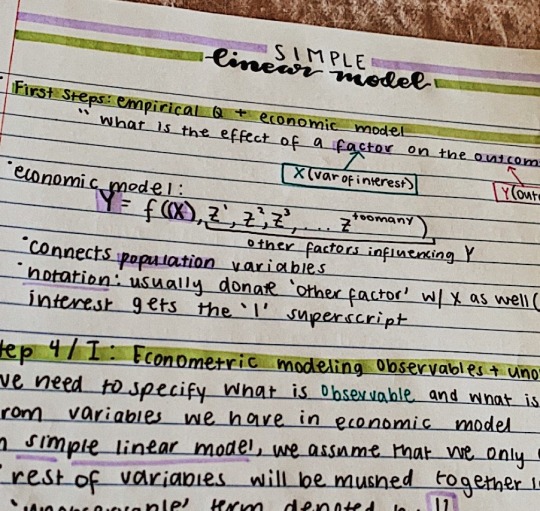 SIMPLE
linear model
First steps: empirical Q + economic model
"what is the effect of a factor on the outcom
X (var of interest)
Y (outc
economic model:
Y = f(X), z¹, z², z³, ... z^toomany)
other factors influencing Y
connects population variables
notation: usually donate 'other factor' w/ X as well (
interest gets the '1' superscript
tep 4/I: Econometric modeling observables + uno
we need to specify what is observable and what is
rom variables we have in economic model
simple linear model, we assume that we only
rest of variables will be mushed together i
term denoted